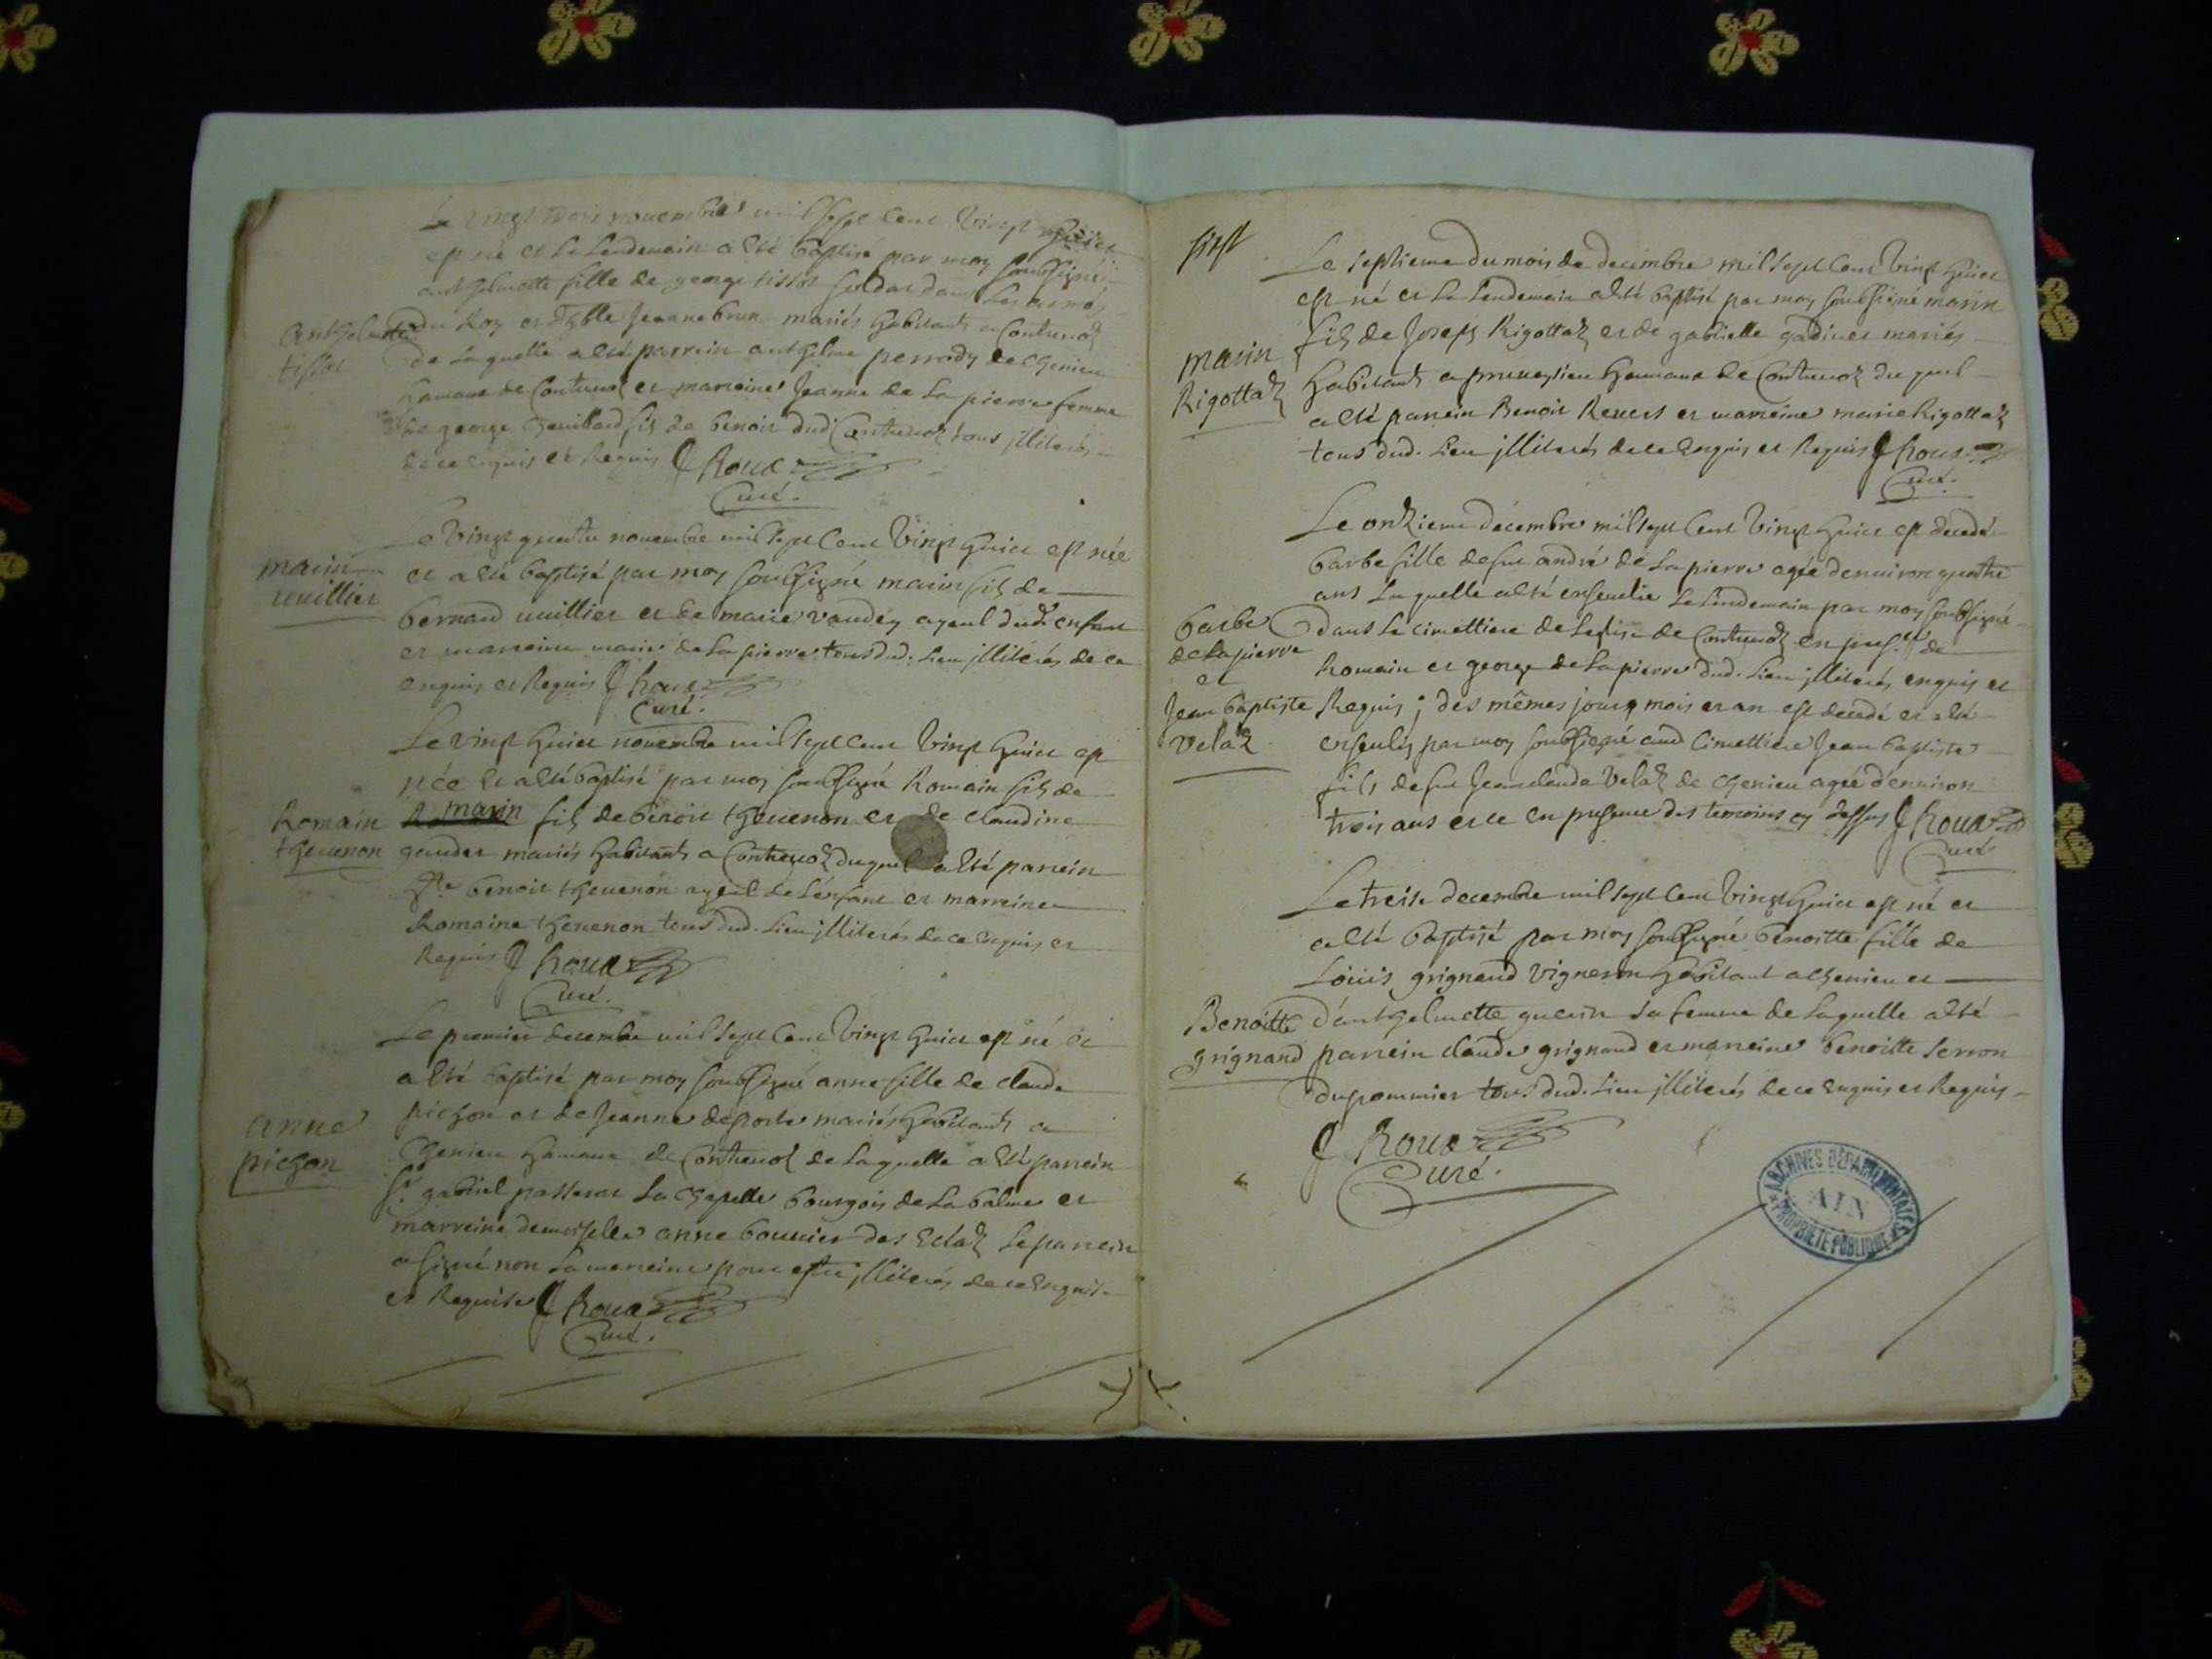 Le vingt trois novembre mil sept cent vingt huict
est né et le lendemain a êté baptisé par moy soubsigné
anthelmette fille de george tissot soldat dans les armés
anthelmette
tissot
du Roy et d'hble Jeanne brun mariés habitants a Contrevoz
de laquelle a êté parrein anthelme perrody de chenieu
hameau de Contrevoz et marreine Jeanne de la pierre femme
de george fils de benoit dud Contrevoz tous illiterés
de ce enquis et Requis J Roux
Curé.
Le vingt quatre novembre mil sept cent vingt huict est née
marin
vuillier
et a êté baptisé par moy soubsigné marin fils de
bernard vuillier et de marie vaudey ayeul dud. enfant
et marreine marie de la pierre tous dud. lieu illiterés de ce
enquis et Requis J Roux
Curé.
Le vingt huict novembre mil sept cent vingt huict est
née et a êté baptisé par moy soubsigné Romain fils de
Romain
thevenon
R marin fils de benoit thevenon et de claudine
mariés habitants a Contrevoz duquel a êté parrein
hble benoit thevenon ayeul de l'enfant et marreine
Romaine thevenon tous dud. lieu illiterés de ce enquis et
Requis J Roux
Curé.
Le premier decembre mil sept cent vingt huict est né et
a êté baptisé par moy soubsigné anne fille de claude
anne
pichon
pichon et de Jeanne deporte mariés habitants a
Chenieu hameau de Contrevoz de laquelle a êté parrein
Sr. gabriel passerat la chapelle bourgois de la balme et
marreine demoiselle anne bouvier des Eclaz le parrein
a signé non la marreine pour estre illiterés de ce enquise
et Requise J Roux
Curé.
sept
Le septieme du mois de decembre mil sept cent vingt huict
est né et le lendemain a êté baptisé par moy soubsigné marin
marin
Rigottaz
fils de Joseph Rigottaz et de gabrielle mariés
habitants a hameau de Contrevoz du quel
a êté parrein Benoit Revers et marreine marie Rigottaz
tous dud. lieu illiterés de ce enquis et Requis J Roux
Curé.
Le onzieme decembre mil sept cent vingt huict est decedé
barbe fille de feu andré de la pierre agée denviron quatre
ans laquelle a êté ensevelie le lendemain par moy soubsigné
barbe
de la pierre
et
Jean baptiste
velaz
dans le cimettiere de leglise de Contrevoz en pres.ce de
Romain et george de la pierre dud. lieu illiterés enquis et
Requis ; des mêmes jour, mois et an est decedé et a êté
ensevely par moy soubsigné aud cimettiere Jean baptiste
fils de feu Jean claude Velaz de chenieu agée d'environ
trois ans et ce en presence des temoins cy dessus J Roux
Curé
Le treise decembre mil sept cent vingt huict est né et
a êté baptisé par moy soubsigné benoitte fille de
Loüis grignand vigneron habitant a chenieu et
Benoitte
grignand
d'anthelmette guerin sa femme de laquelle a êté
parrein claude grignand et marreine benoitte serron
du pommier tous dud. lieu illiterés de ce enquis et Requis
J Roux
Curé.
ARCHIVES DÉPARTEMENTALES
AIN
PROPRIÉTÉ PUBLIQUE